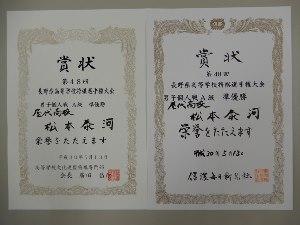 賞状
第48回
長野県高等学校将棋選手権大会
男子個人戦 A級 準優勝
屋代高校
松本泰河
栄誉をたたえます
平成30年5月13日
会長
賞状
第48回
長野県高等学校将棋選手権大会
男子個人戦 A級 準優勝
屋代高校
松本泰河
栄誉をたたえます
平成30年5月13日
信濃毎日新聞社